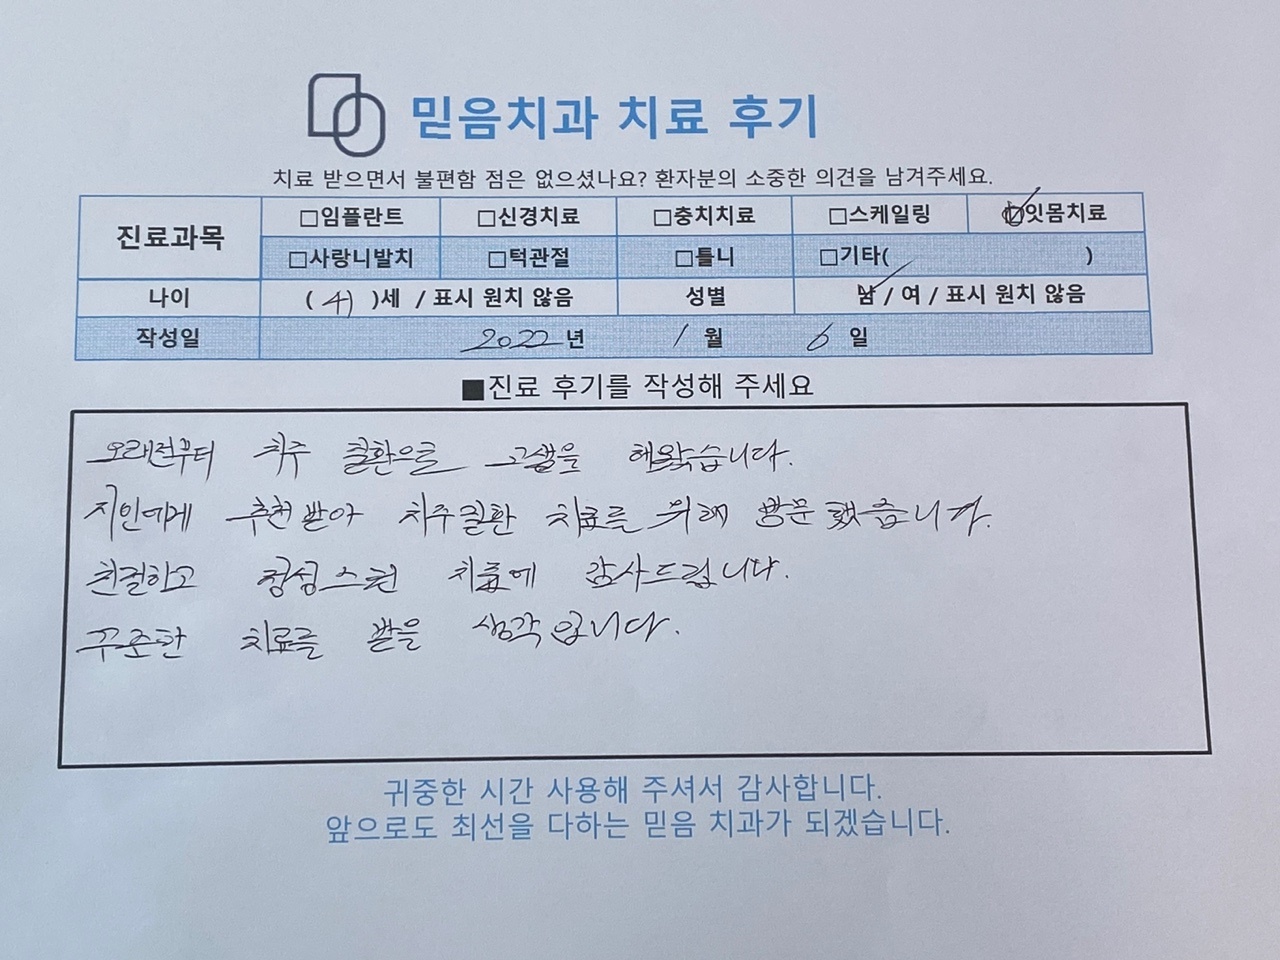 믿음치과 치료 후기
치료 받으면서 불편함 점은 없으셨나요? 환자분의 소중한 의견을 남겨주세요.
진료과목 □임플란트 □신경치료 □충치치료 □스케일링 ☑잇몸치료
□사랑니발치 □턱관절 □틀니 □기타( )
나이 ( 41 )세 / 표시 원치 않음 성별 남 / 여 / 표시 원치 않음
작성일 2022 년 1 월 6 일
■진료 후기를 작성해 주세요
오래전부터 치주 질환으로 고생을 해왔습니다.
지인에게 추천 받아 치주질환 치료를 위해 방문했습니다.
친절하고 정성스런 치료에 감사드립니다.
꾸준한 치료를 받을 생각입니다.
귀중한 시간 사용해 주셔서 감사합니다.
앞으로도 최선을 다하는 믿음 치과가 되겠습니다.